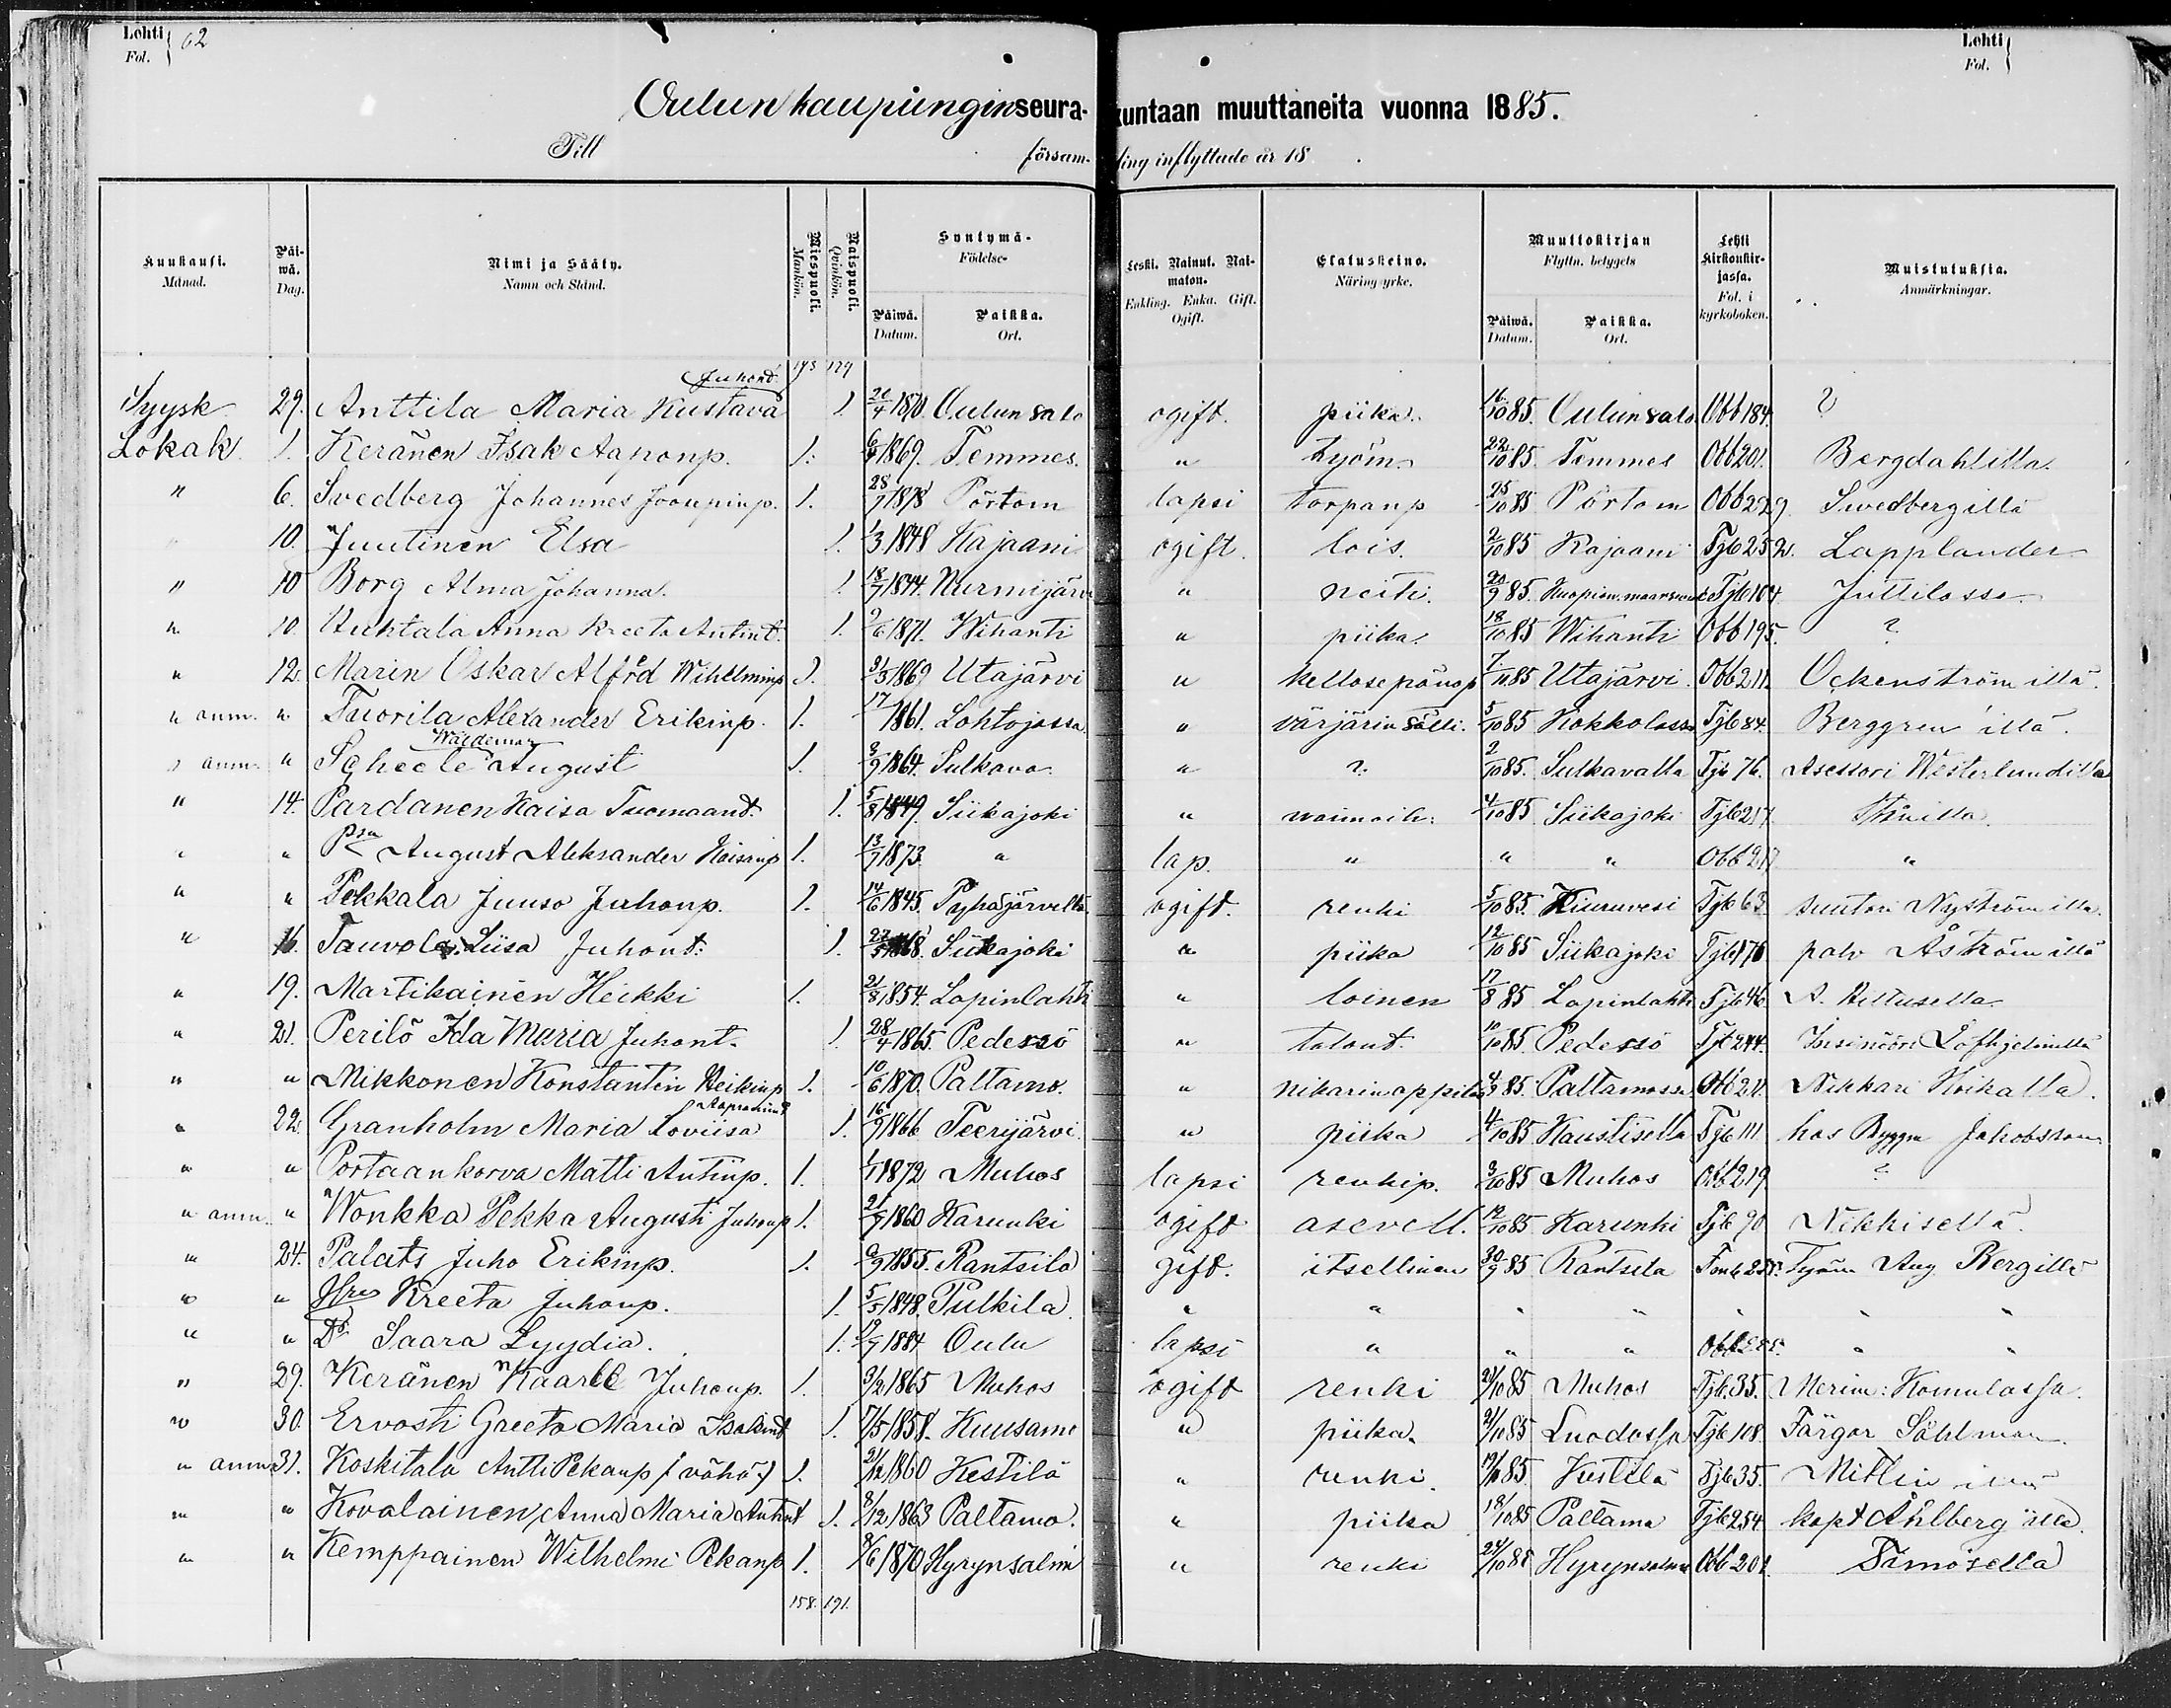 Lehti 62 Lehti
Fol. Fol.
Oulun kaupungin seura-kuntaan muuttaneita vuonna 1885.
Till försam-ling inflyttade år 18 .
Kuukausi. Månad. | Päi-wä. Dag. | Nimi ja Sääty. Namn och Stånd. | Miespuoli. Mankön. | Naispuoli. Qvinkön. | Syntymä- Födelse- Päiwä. Datum. Paikka. Ort. | Leski. Nainut. Nai-maton. Enkling. Enka. Gift. Ogift. | Elatuskeino. Näringsyrke. | Muuttokirjan Flyttn. betygets Päiwä. Datum. Paikka. Ort. | Lehti kirkonkir-jassa. Fol. i kyrkoboken. | Muistutuksia. Anmärkningar.
Juhont. 129
Syysk 29. Anttila Maria Kustava 1. 20/4 1870. Oulunsalo ogift. piika. 16/10 85. Oulunsalo Obb 184. ?
Lokak. 1. Keränen Isak Aaponp. 1. 6/4 1869. Temmes. " työm. 22/10 85. Temmes Obb 201. Bergdahlilla.
" 6. Svedberg Johannes 1. 28/7 1878 Pörtom lapsi torpanp 25/10 85 Pörtom Obb 229. Swedbergillä
" 10. Juutinen Elsa 1. 1/3 1848 Kajaani ogift. lois. 2/10 85 Kajaani Tjb 252. Lapplander
" 10 Borg Alma Johanna. 1 18/7 1844. Nurmijärvi " neiti. 20/9 85. Tjb 104. Juttilassa.
" 10. Huhtala Anna Kreeta Antint. 1. 9/6 1871. Wihanti " piika. 18/10 85 Wihanti Obb 195. ?
" 12. Marin Oskar Alfrd Wihelminp 1. 31/5 1869 Utajärvi " kellosepänop 7/10 85 Utajärvi. Obb 211. Ockenström illä.
" anm. " Tuorila Alexander Erikinp. 1. 17/ 1861. Lohtojassa. " värjärin sälli. 5/10 85 Kokkolassa Tjb 84. Berggren illä.
Waldemar
" anm. " Scheele August 1. 3/9 1864. Sulkava " ? 2/10 85. Sulkavalta Tjb 76. Asessori Westerlundilla
" 14. Pardanen Kaisa Tuomaant. 1. 5/8 1849. Siikajoki " vaimoih: 4/10 85 Siikajoki Tjb 217.
" " Psa August Aleksander Kaisanp 1. 13/7 1873. " lap. " " " Obb 217 "
" " Pekkala Juuso Juhonp. 1. 14/6 1845. Pyhäjärveltä. ogift. renki 5/10 85. Kiuruvesi Tjb 63. suutari Nyström illä.
" 16. Tauvola Liisa Juhont: 1. 1868. Siikajoki " piika 12/10 85 Siikajoki Tjb 176 palv Åström illä
" 19. Martikainen Heikki 1. 21/8 1854. Lapinlahti " loinen 17/8 85 Lapinlahti Tjb 46. A. Kettusella.
" 21. Perilö Ida Maria Juhont. 1. 28/4 1865. Pedersö " talont. 10/10 85. Pedersö Tjb 244. Insinööri Löfhjelmillä
" " Mikkonen Konstantin Heikinp 1. 10/6 1870. Paltamo. " nikarin oppilas 4/9 85. Paltamossa Obb 211. Nikkari Hoikalla.
" 22. Granholm Maria Loviisa 1. 16/9 1866 Teerijärvi " piika 4/10 85 Kaustisella Tjb 111 hos Byggm Jakobsson
" " Portaankorva Matti Antinp. 1. 1/1 1872 Muhos lapsi renkip. 3/10 85 Muhos Obb 219 ?
" anm. " Wonkka Pekka Augusti Juhonp 1. 21/7 1860 Karunki ogift asevell. 12/10 85 Karunki Tjb 90 Nikkisellä.
" 24. Palats Juho Erikinp. 1. 9/9 1855. Rantsila gift. itsellinen 30/9 85. Rantsila Työm Aug. Bergillä
" " Hru Kreeta Juhonp. 1. 5/5 1848. Pulkila " " " " " "
" " Dr Saara Lyydia. 1. 19/9 1884 Oulu lapsi " " " " "
" 29. Keränen Kaarle Juhonp. 1. 3/2 1865 Muhos ogift renki 21/10 85 Muhos Tjb. 35. Merim: Komulassa.
" 30. Ervasti Greeta Maria Isakint 1. 7/5 1858. Kuusamo " piika. 2/10 85 Luodossa Tjb 108. Färgar Sählman
" anm 31. Koskitalo Antti Pekanp (vähä) 1. 21/12 1860 Kestilä " renki. 19/10 85. Kestilä Tjb 35. Mittin illä
" " Kovalainen Anna Maria Antint 1. 8/12 1863 Paltamo. " piika 18/10 85 Paltamo Tjb 254 kapt Åhlberg illa.
" " Kemppainen Wilhelmi Pekanp 1. 8/6 1870 Hyrynsalmi " renki 25/10 85 Hyrynsalmi Obb 201. Timosella
158. 191.